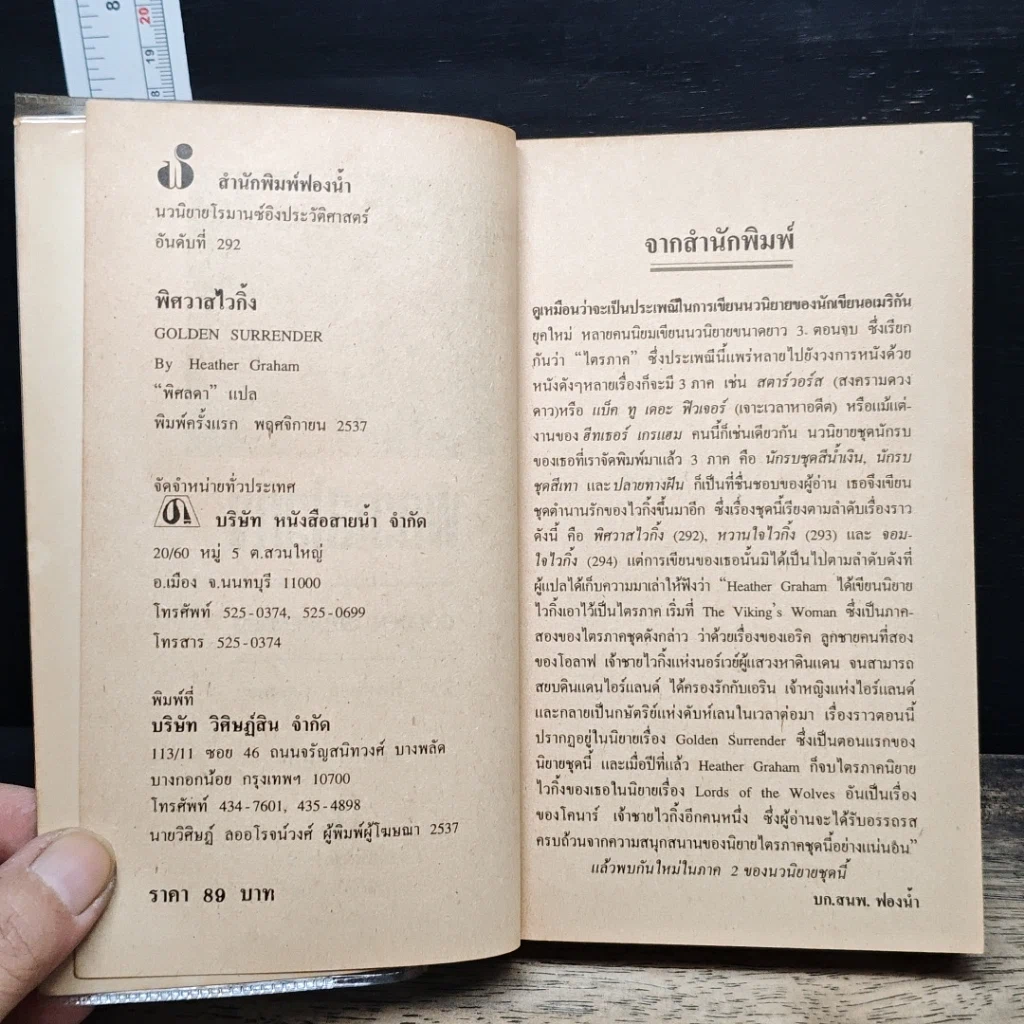 8
20
19
18
สำนักพิมพ์ฟองน้ำ
นวนิยายโรมานซ์อิงประวัติศาสตร์
อันดับที่ 292
พิศวาสไวกิ้ง
GOLDEN SURRENDER
By Heather Graham
“พิศลดา” แปล
พิมพ์ครั้งแรก พฤศจิกายน 2537
จัดจำหน่ายทั่วประเทศ
บริษัท หนังสือสายน้ำ จำกัด
20/60 หมู่ 5 ต.สวนใหญ่
อ.เมือง จ.นนทบุรี 11000
โทรศัพท์ 525-0374, 525-0699
โทรสาร 525-0374
พิมพ์ที่
บริษัท วิศิษฏ์สิน จำกัด
113/11 ซอย 46 ถนนจรัญสนิทวงศ์ บางพลัด
บางกอกน้อย กรุงเทพฯ 10700
โทรศัพท์ 434-7601, 435-4898
นายวิศิษฏ์ ลออโรจน์วงศ์ ผู้พิมพ์ผู้โฆษณา 2537
ราคา 89 บาท
จากสำนักพิมพ์
ดูเหมือนว่าจะเป็นประเพณีในการเขียนนวนิยายของนักเขียนอเมริกัน
ยุคใหม่ หลายคนนิยมเขียนนวนิยายขนาดยาว 3. ตอนจบ ซึ่งเรียก
กันว่า “ไตรภาค” ซึ่งประเพณีนี้แพร่หลายไปยังวงการหนังด้วย
หนังดังๆหลายเรื่องก็จะมี 3 ภาค เช่น สตาร์วอร์ส (สงครามดวง
ดาว)หรือ แบ็ค ทู เดอะ ฟิวเจอร์ (เจาะเวลาหาอดีต) หรือแม้แต่-
งานของ ฮีทเธอร์ เกรแฮม คนนี้ก็เช่นเดียวกัน นวนิยายชุดนักรบ
ของเธอที่เราจัดพิมพ์มาแล้ว 3 ภาค คือ นักรบชุดสีน้ำเงิน, นักรบ
ชุดสีเทา และปลายทางฝัน ก็เป็นที่ชื่นชอบของผู้อ่าน เธอจึงเขียน
ชุดตำนานรักของไวกิ้งขึ้นมาอีก ซึ่งเรื่องชุดนี้เรียงตามลำดับเรื่องราว
ดังนี้ คือ พิศวาสไวกิ้ง (292), หวานใจไวกิ้ง (293) และ จอม-
ใจไวกิ้ง (294) แต่การเขียนของเธอนั้นมิได้เป็นไปตามลำดับดังที่
ผู้แปลได้เก็บความมาเล่าให้ฟังว่า “Heather Graham ได้เขียนนิยาย
ไวกิ้งเอาไว้เป็นไตรภาค เริ่มที่ The Viking's Woman ซึ่งเป็นภาค-
สองของไตรภาคชุดดังกล่าว ว่าด้วยเรื่องของเอริค ลูกชายคนที่สอง
ของโอลาฟ เจ้าชายไวกิ้งแห่งนอร์เวย์ผู้แสวงหาดินแดน จนสามารถ
สยบดินแดนไอร์แลนด์ ได้ครองรักกับเอริน เจ้าหญิงแห่งไอร์แลนด์
และกลายเป็นกษัตริย์แห่งดับห์เลนในเวลาต่อมา เรื่องราวตอนนี้
ปรากฏอยู่ในนิยายเรื่อง Golden Surrender ซึ่งเป็นตอนแรกของ
นิยายชุดนี้ และเมื่อปีที่แล้ว Heather Graham ก็จบไตรภาคนิยาย
ไวกิ้งของเธอในนิยายเรื่อง Lords of the Wolves อันเป็นเรื่อง
ของโคนาร์ เจ้าชายไวกิ้งอีกคนหนึ่ง ซึ่งผู้อ่านจะได้รับอรรถรส
ครบถ้วนจากความสนุกสนานของนิยายไตรภาคชุดนี้อย่างแน่นอน”
แล้วพบกันใหม่ในภาค 2 ของนวนิยายชุดนี้
บก.สนพ. ฟองน้ำ